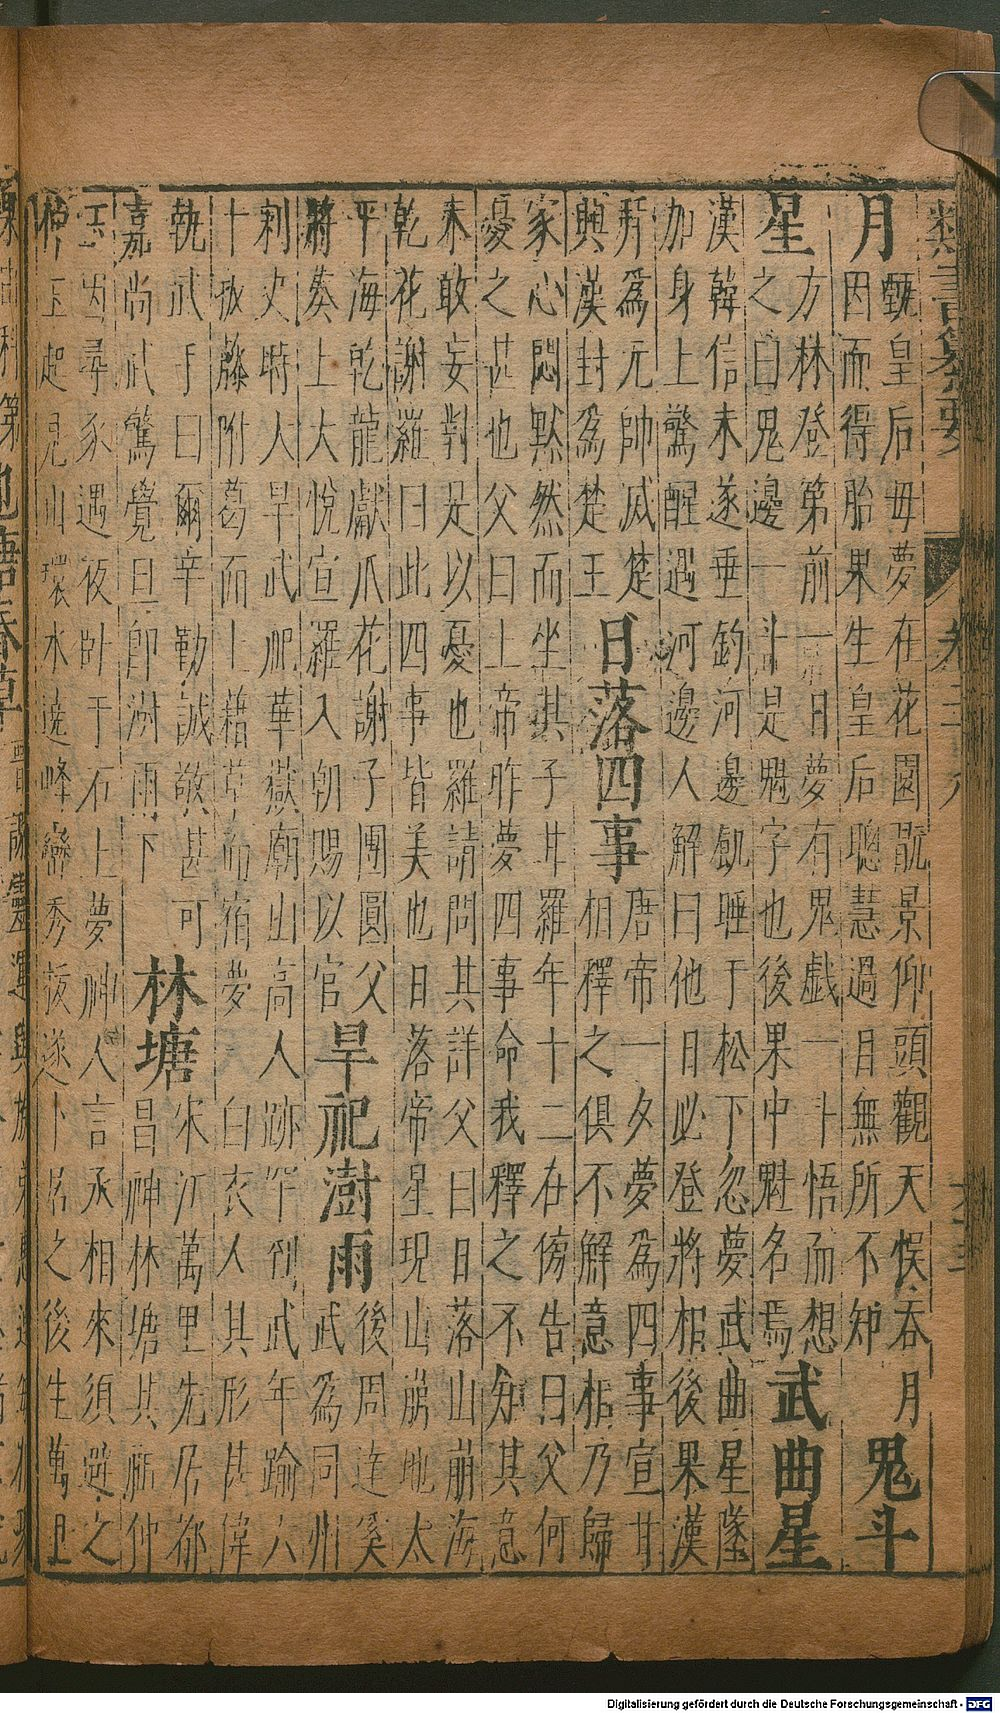 類書纂要
月
甄皇后母夢在花園翫景仰頭觀天悞吞月
因而得胎果生皇后聰慧過目無所不知
鬼斗
星
方林登第前一日夢有鬼戲一斗悟而想
之曰鬼邊一斗是魁字也後果中魁名焉
武曲星
漢韓信未遂垂釣河邊飢睡于松下忽夢武曲星墜
加身上驚醒遇河邊人解曰他日必登將相後果漢
拜為元帥滅楚
興漢封為楚王
日落四事
唐帝一夕夢為四事宣甘
相釋之俱不解意相乃歸
家心悶默然而坐其子甘羅年十二在傍告曰父何
憂之甚也父曰上帝昨夢四事命我釋之不知其意
未敢妄對是以憂也羅請問其詳父曰日落山崩海
乾花謝羅曰此四事皆美也日落帝星現山崩地太
平海乾龍獻爪花謝子團圓父
將奏上大悅宣羅入朝賜以官
旱祀澍雨
後周達奚
武為同州
刺史時人旱武祀華嶽廟山高人跡罕到武年踰六
十扳藤附葛而上藉草而宿夢一白衣人其形甚偉
執武手曰爾辛勤誠敬甚可
嘉尚武驚覺旦即澍雨下
林塘
宋江萬里先居都
昌神林塘其祖仲
玉因尋豕遇夜卧于石上夢神人言丞相來須避之
仲玉起見山環水遶峰巒秀拔遂卜居之後生萬里
Digitalisierung gefördert durch die Deutsche Forschungsgemeinschaft - DFG